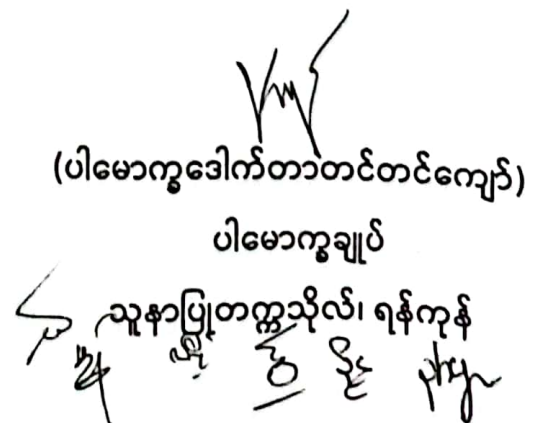 (ပါမောက္ခဒေါက်တာတင်တင်ကျော်)
ပါမောက္ခချုပ်
သူနာပြုတက္ကသိုလ်၊ ရန်ကုန်